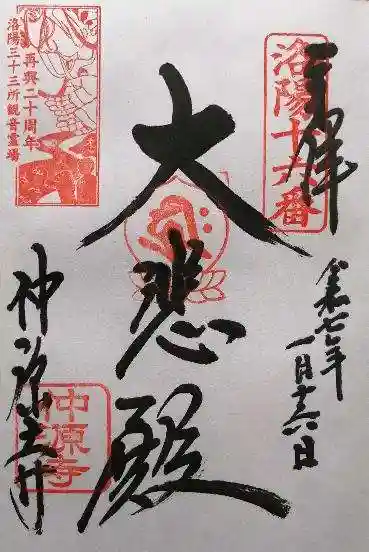 奉拝
洛陽十六番
令和七年
一月十六日
大悲殿
再興二十周年
洛陽三十三所観音霊場
仲源寺